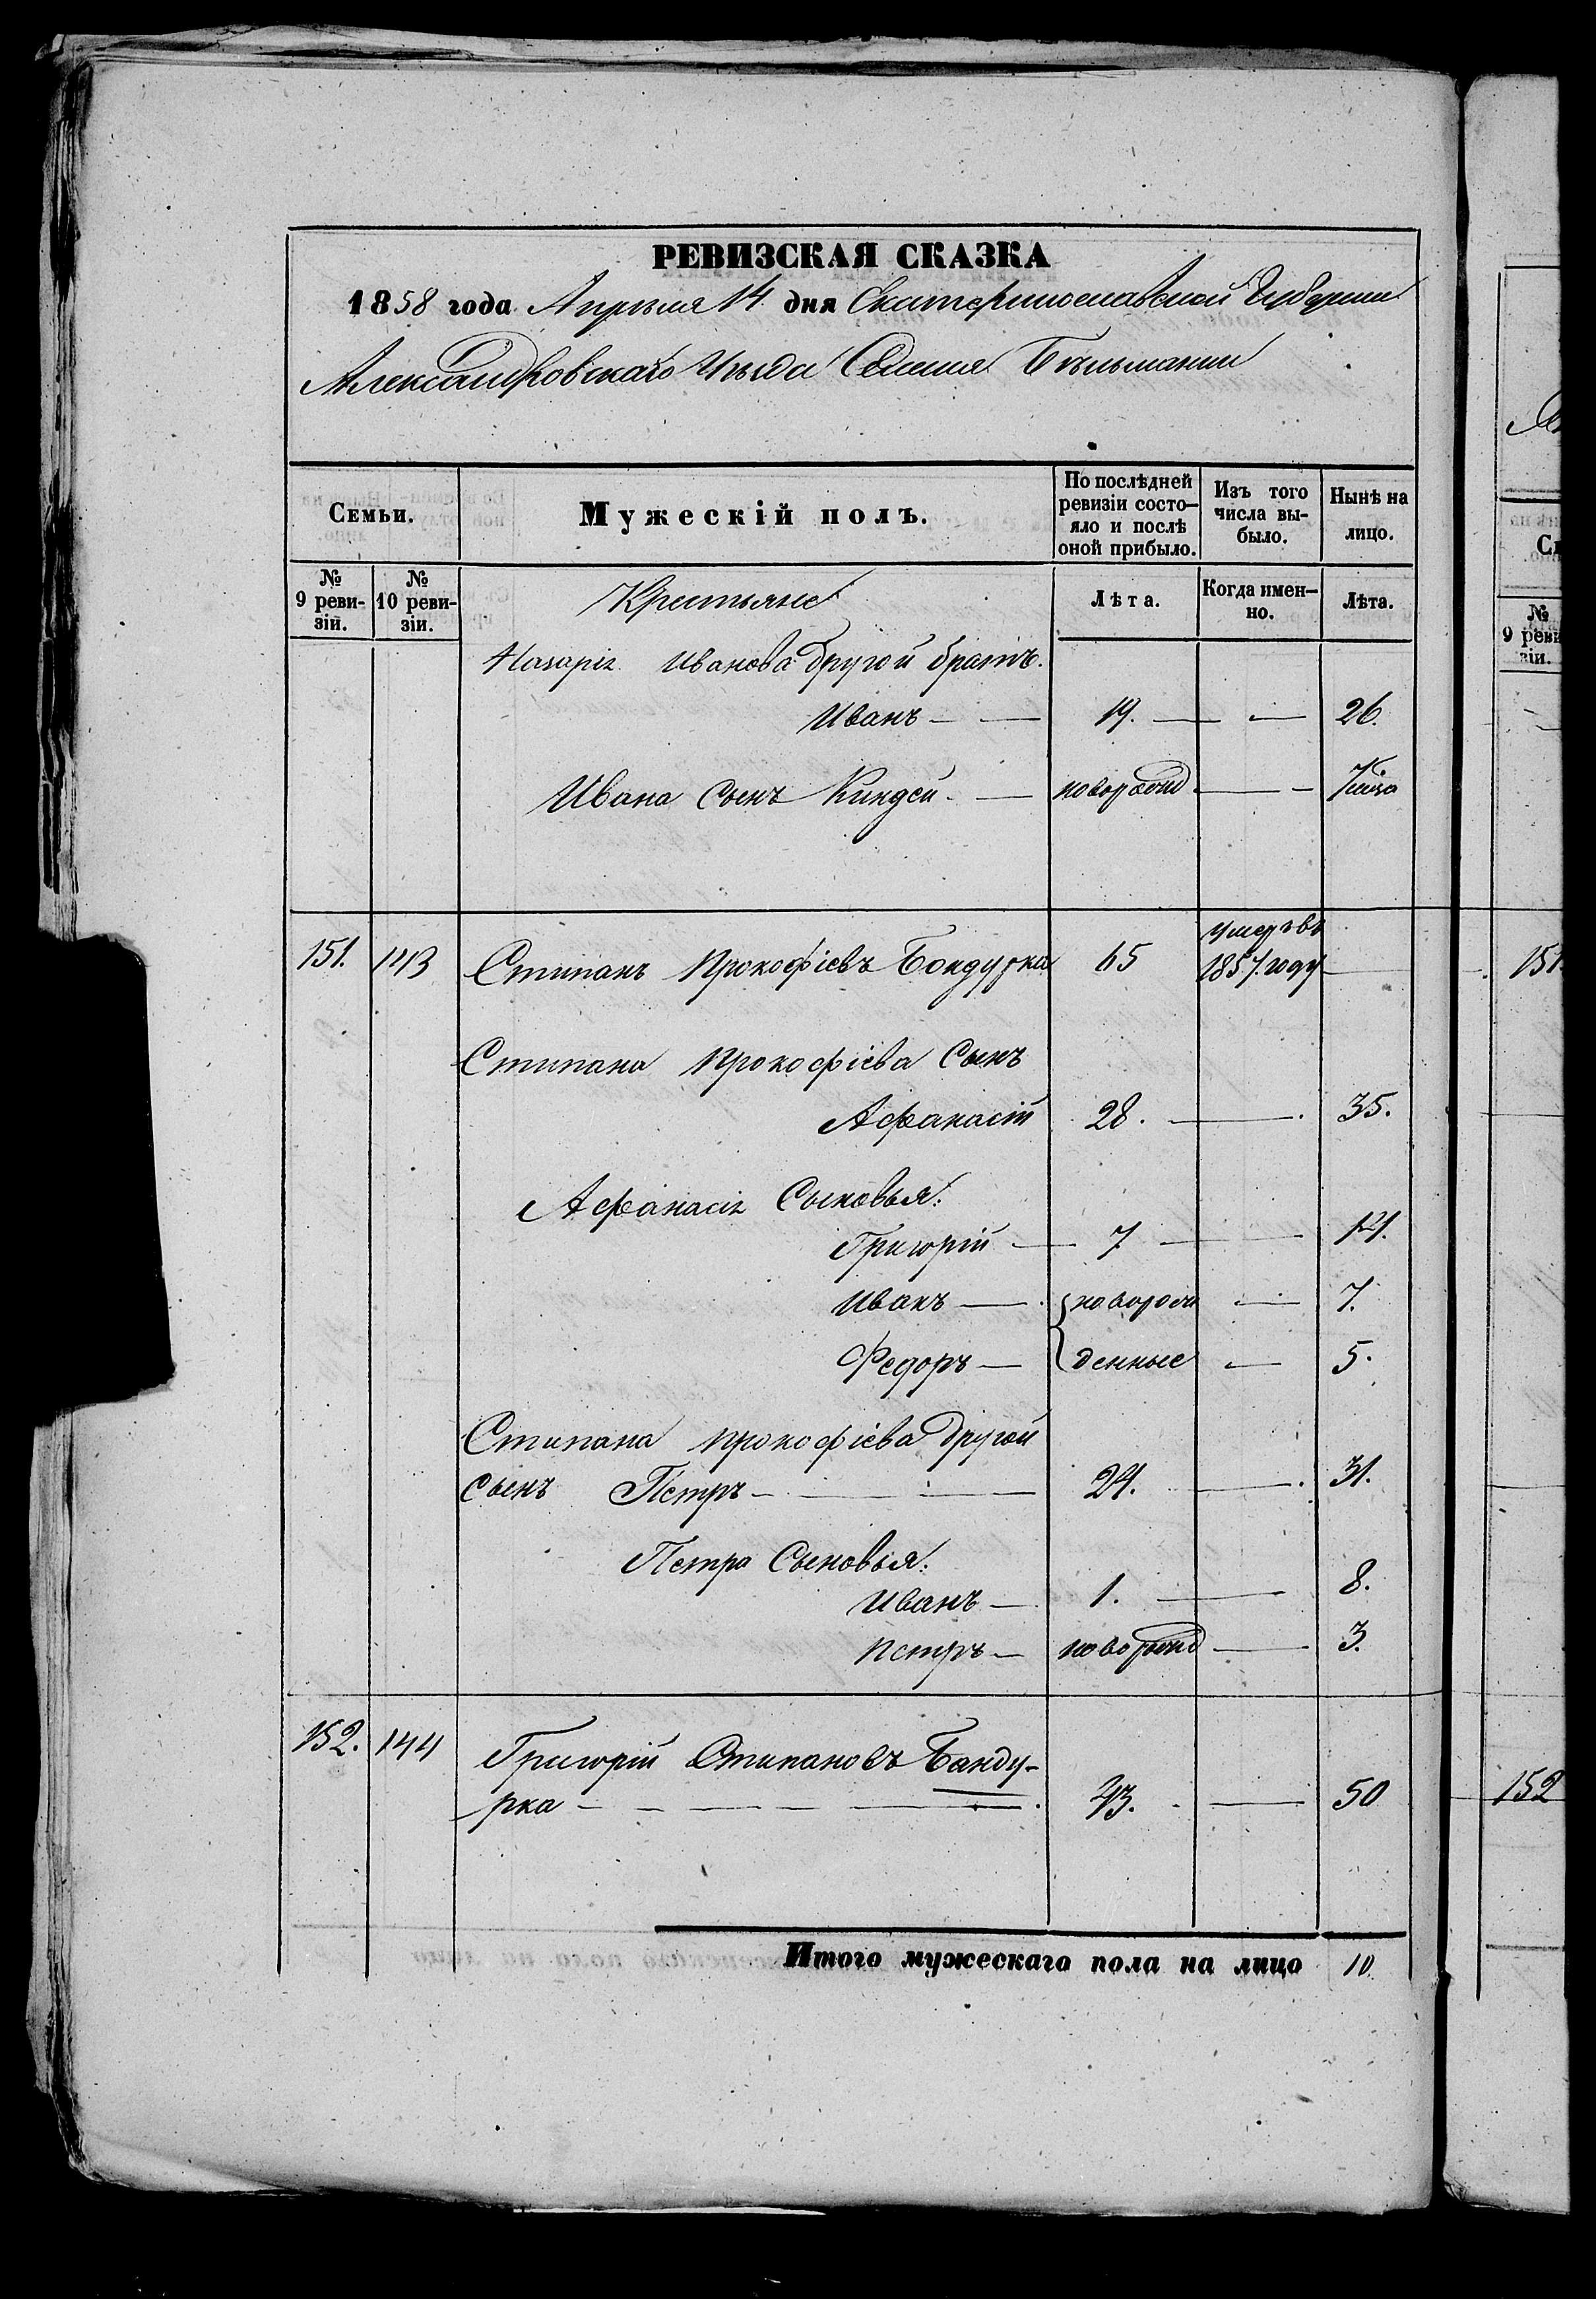 РЕВИЗСКАЯ СКАЗКА
1858 года Апрѣля 14 дня Екатеринославской Губерніи
Александровскаго Уѣзда Селенія Бѣльманки
Семьи.
Мужескій полъ.
По послѣдней
ревизіи состо-
яло и послѣ
оной прибыло.
Изъ того
числа вы-
было.
Нынѣ на
лицо.
№
9 реви-
зіи.
№
10 реви-
зіи.
Крестьяне
Лѣта.
Когда имен-
но.
Лѣта.
Назарія Иванова другой братъ.
Иванъ — — 19. — — 26.
Ивана Сынъ — новорожд — —
151. 143 Стипанъ Прокофіевъ Бондурка 65 умеръ въ
1857 году
Стипана Прокофіева Сынъ
Афанасій 28. — 35.
Афанасія Сыновья:
Григорій — 7 — 14.
Иванъ — новорож — 7.
Федоръ — денные — 5.
Стипана Прокофіева другой
сынъ Петръ — — — 24. — 31.
Петра Сыновья:
Иванъ — 1. — 8.
Петръ — новорожд — 3.
152. 144 Григорій Стипановъ Банду-
рка — — — — — 43. — 50
Итого мужескаго пола на лицо 10.
№
9 реви
зіи.
151
152